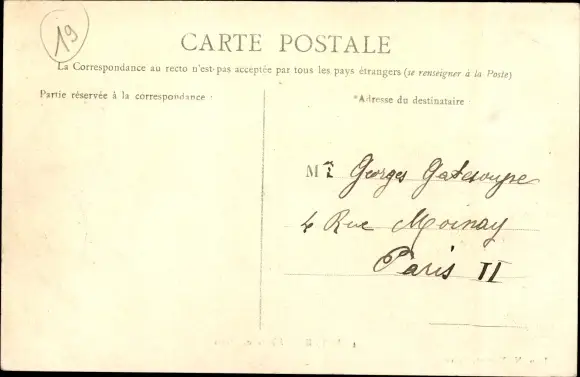 19
CARTE POSTALE
La Correspondance au recto n'est pas acceptée par tous les pays étrangers (se renseigner à la Poste)
Partie réservée à la correspondance :
Adresse du destinataire
Mr Georges
4 Rue Moinay
Paris II